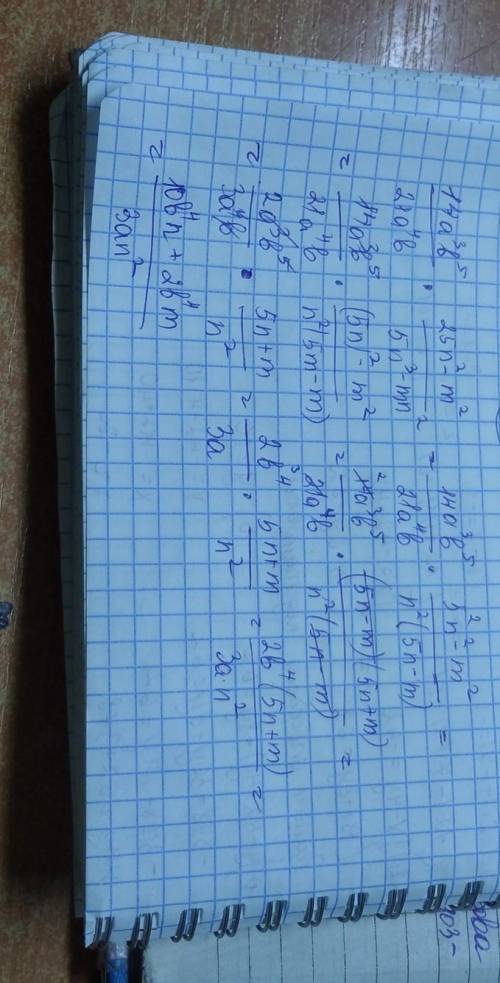 14a³b⁵/21a⁴b · 25n²-m²/5n³-mn² = 14a³b⁵/21a⁴b · 5²n²-m²/n²(5n-m) =
= 14a³b⁵/21a⁴b · (5n)²-m²/n²(5n-m) = ²14a³b⁵/³21a⁴b · (5n-m)(5n+m)/n²(5n-m) =
= 2a³b⁵/3a⁴b · 5n+m/n² = 2b⁴/3a · 5n+m/n² = 2b⁴(5n+m)/3a·n² =
= 10b⁴n+2b⁴m/3an²